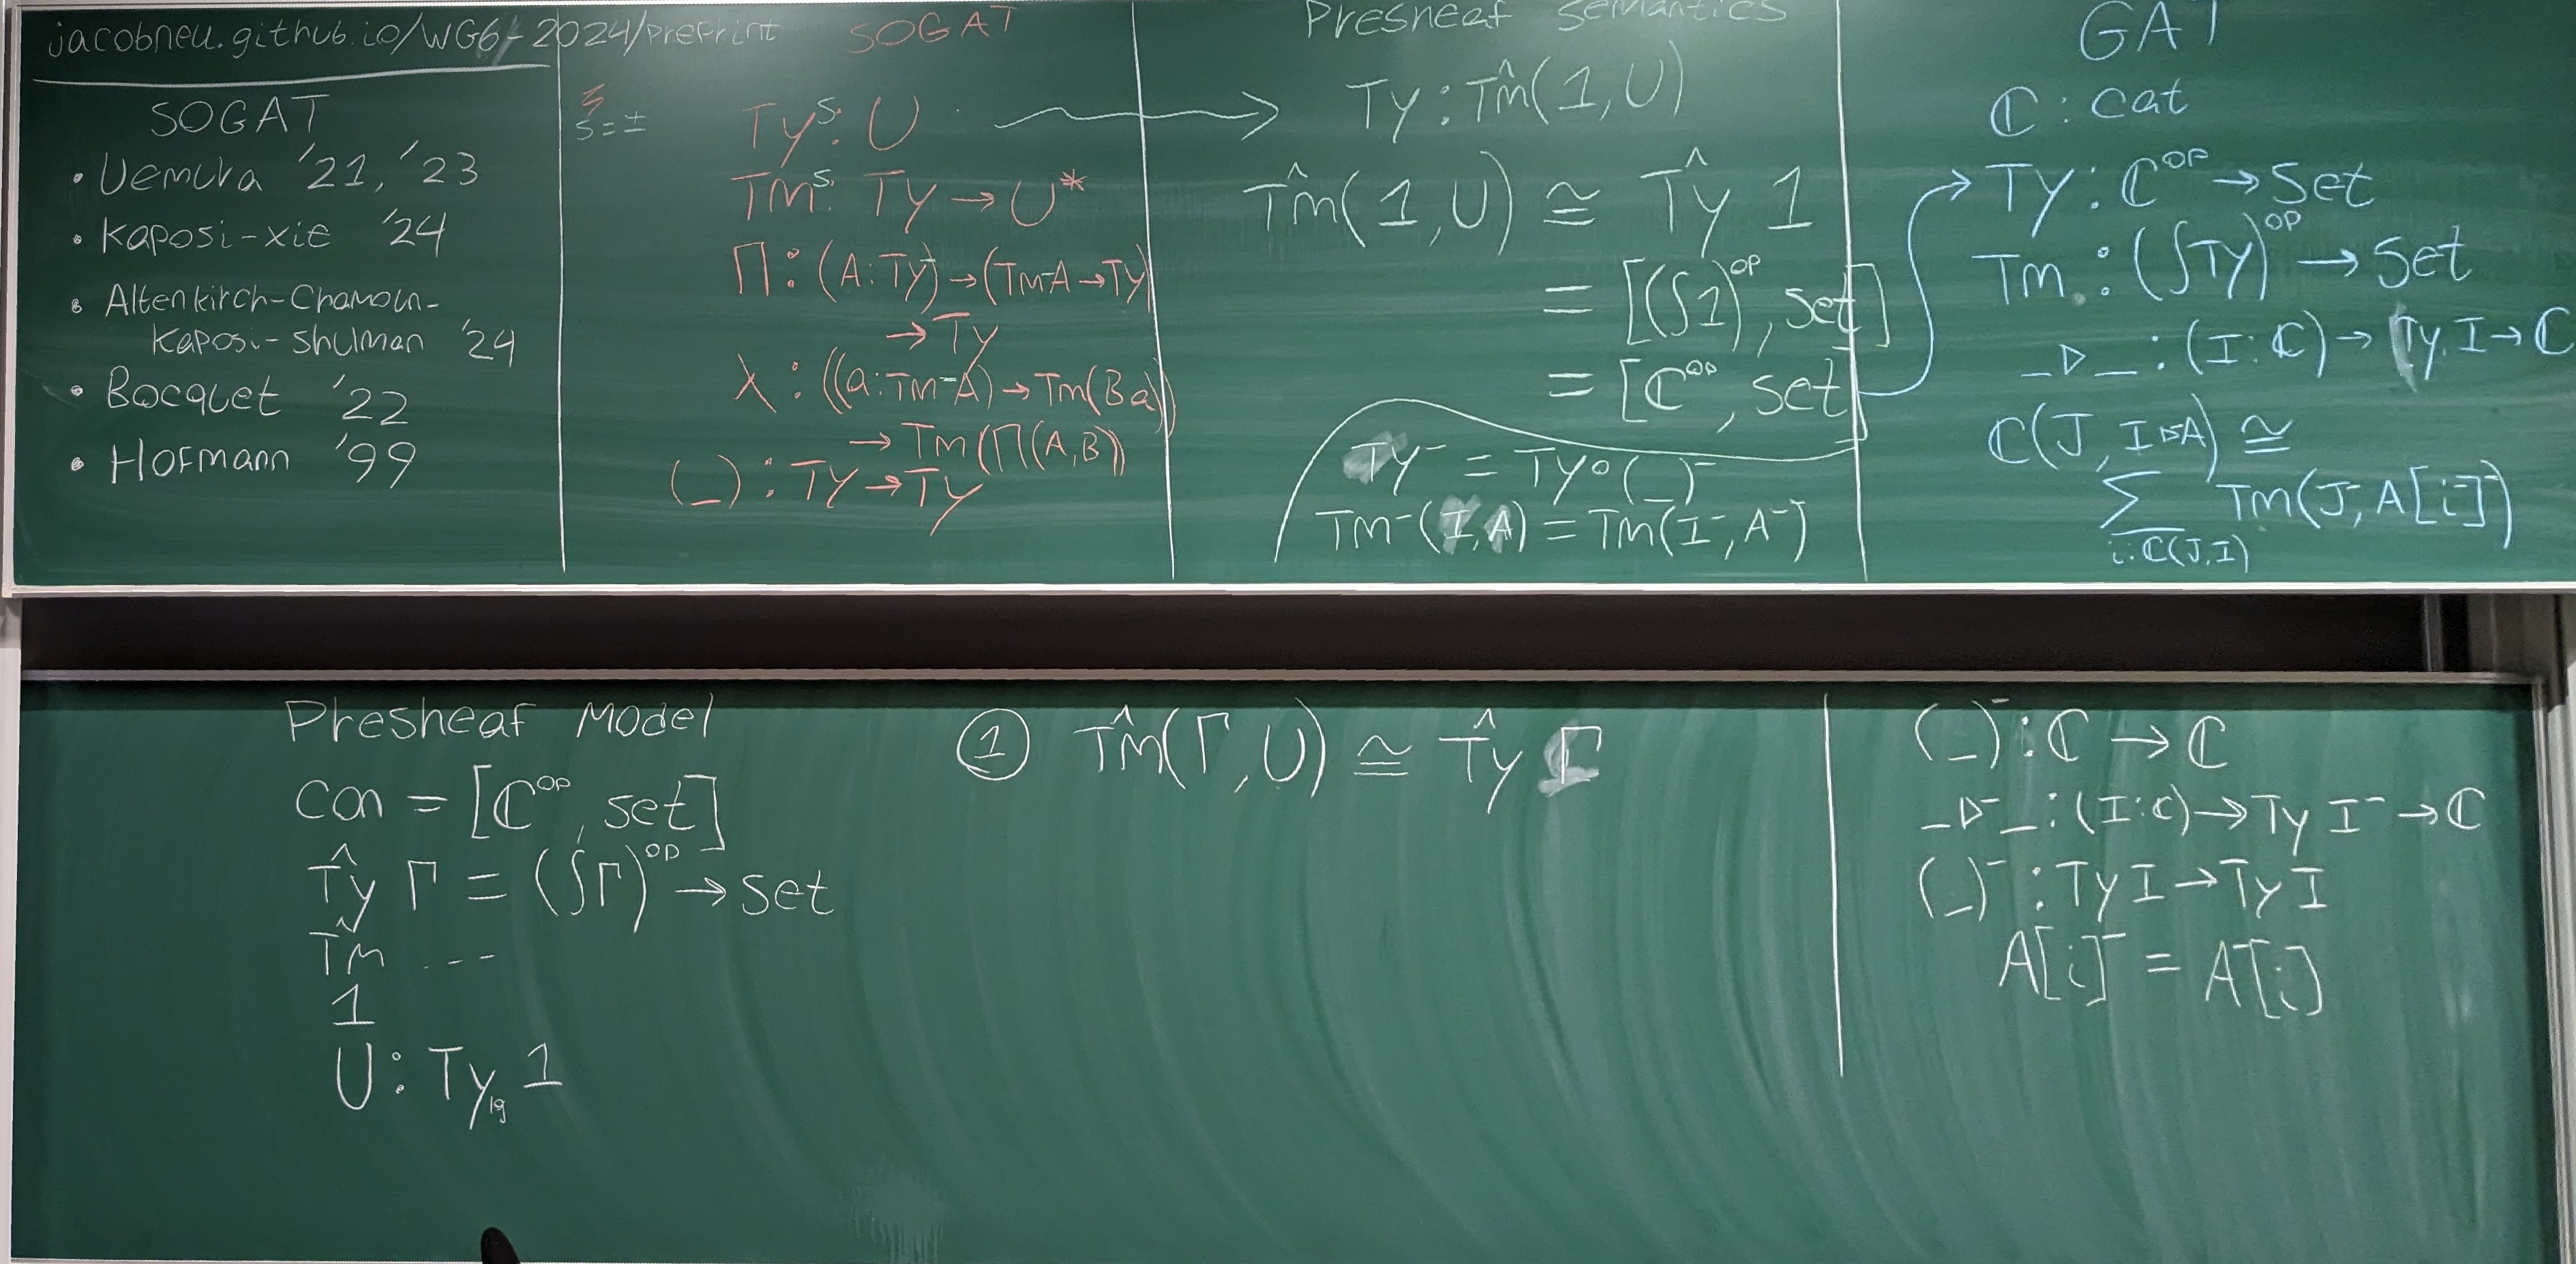 jacobneu.github.io/WG6-2024/preprint
SOGAT
• Uemura '21, '23
• Kaposi-Xie '24
• Altenkirch-Chamoun-
Kaposi-Shulman '24
• Bocquet '22
• Hofmann '99
SOGAT
s=±
Ty^s: U
Tm^s: Ty → U*
Π : (A:Ty⁻) → (Tm⁻A → Ty)
→ Ty
λ : ((a:Tm⁻A) → Tm(Ba))
→ Tm(Π(A,B))
(_)⁻ : Ty → Ty
Presheaf semantics
Ty : T̂m(1,U)
T̂m(1,U) ≅ T̂y 1
= [(∫1)^op, Set]
= [ℂ^op, Set]
Ty⁻ = Ty∘(_)⁻
Tm⁻(I,A) = Tm(I⁻,A⁻)
GAT
ℂ : Cat
Ty : ℂ^op → Set
Tm : (∫Ty)^op → Set
_▷_ : (I:ℂ) → Ty I → ℂ
ℂ(J, I▷^sA) ≅
∑ Tm(J⁻, A[i]⁻)
i:ℂ(J,I)
Presheaf Model
Con = [ℂ^op, Set]
T̂y Γ = (∫Γ)^op → Set
T̂m ---
1
U : Ty_lg 1
① T̂m(Γ,U) ≅ T̂y Γ
(_)⁻ : ℂ → ℂ
_▷⁻_ : (I:ℂ) → Ty I⁻ → ℂ
(_)⁻ : Ty I → Ty I
A[i]⁻ = A⁻[i]